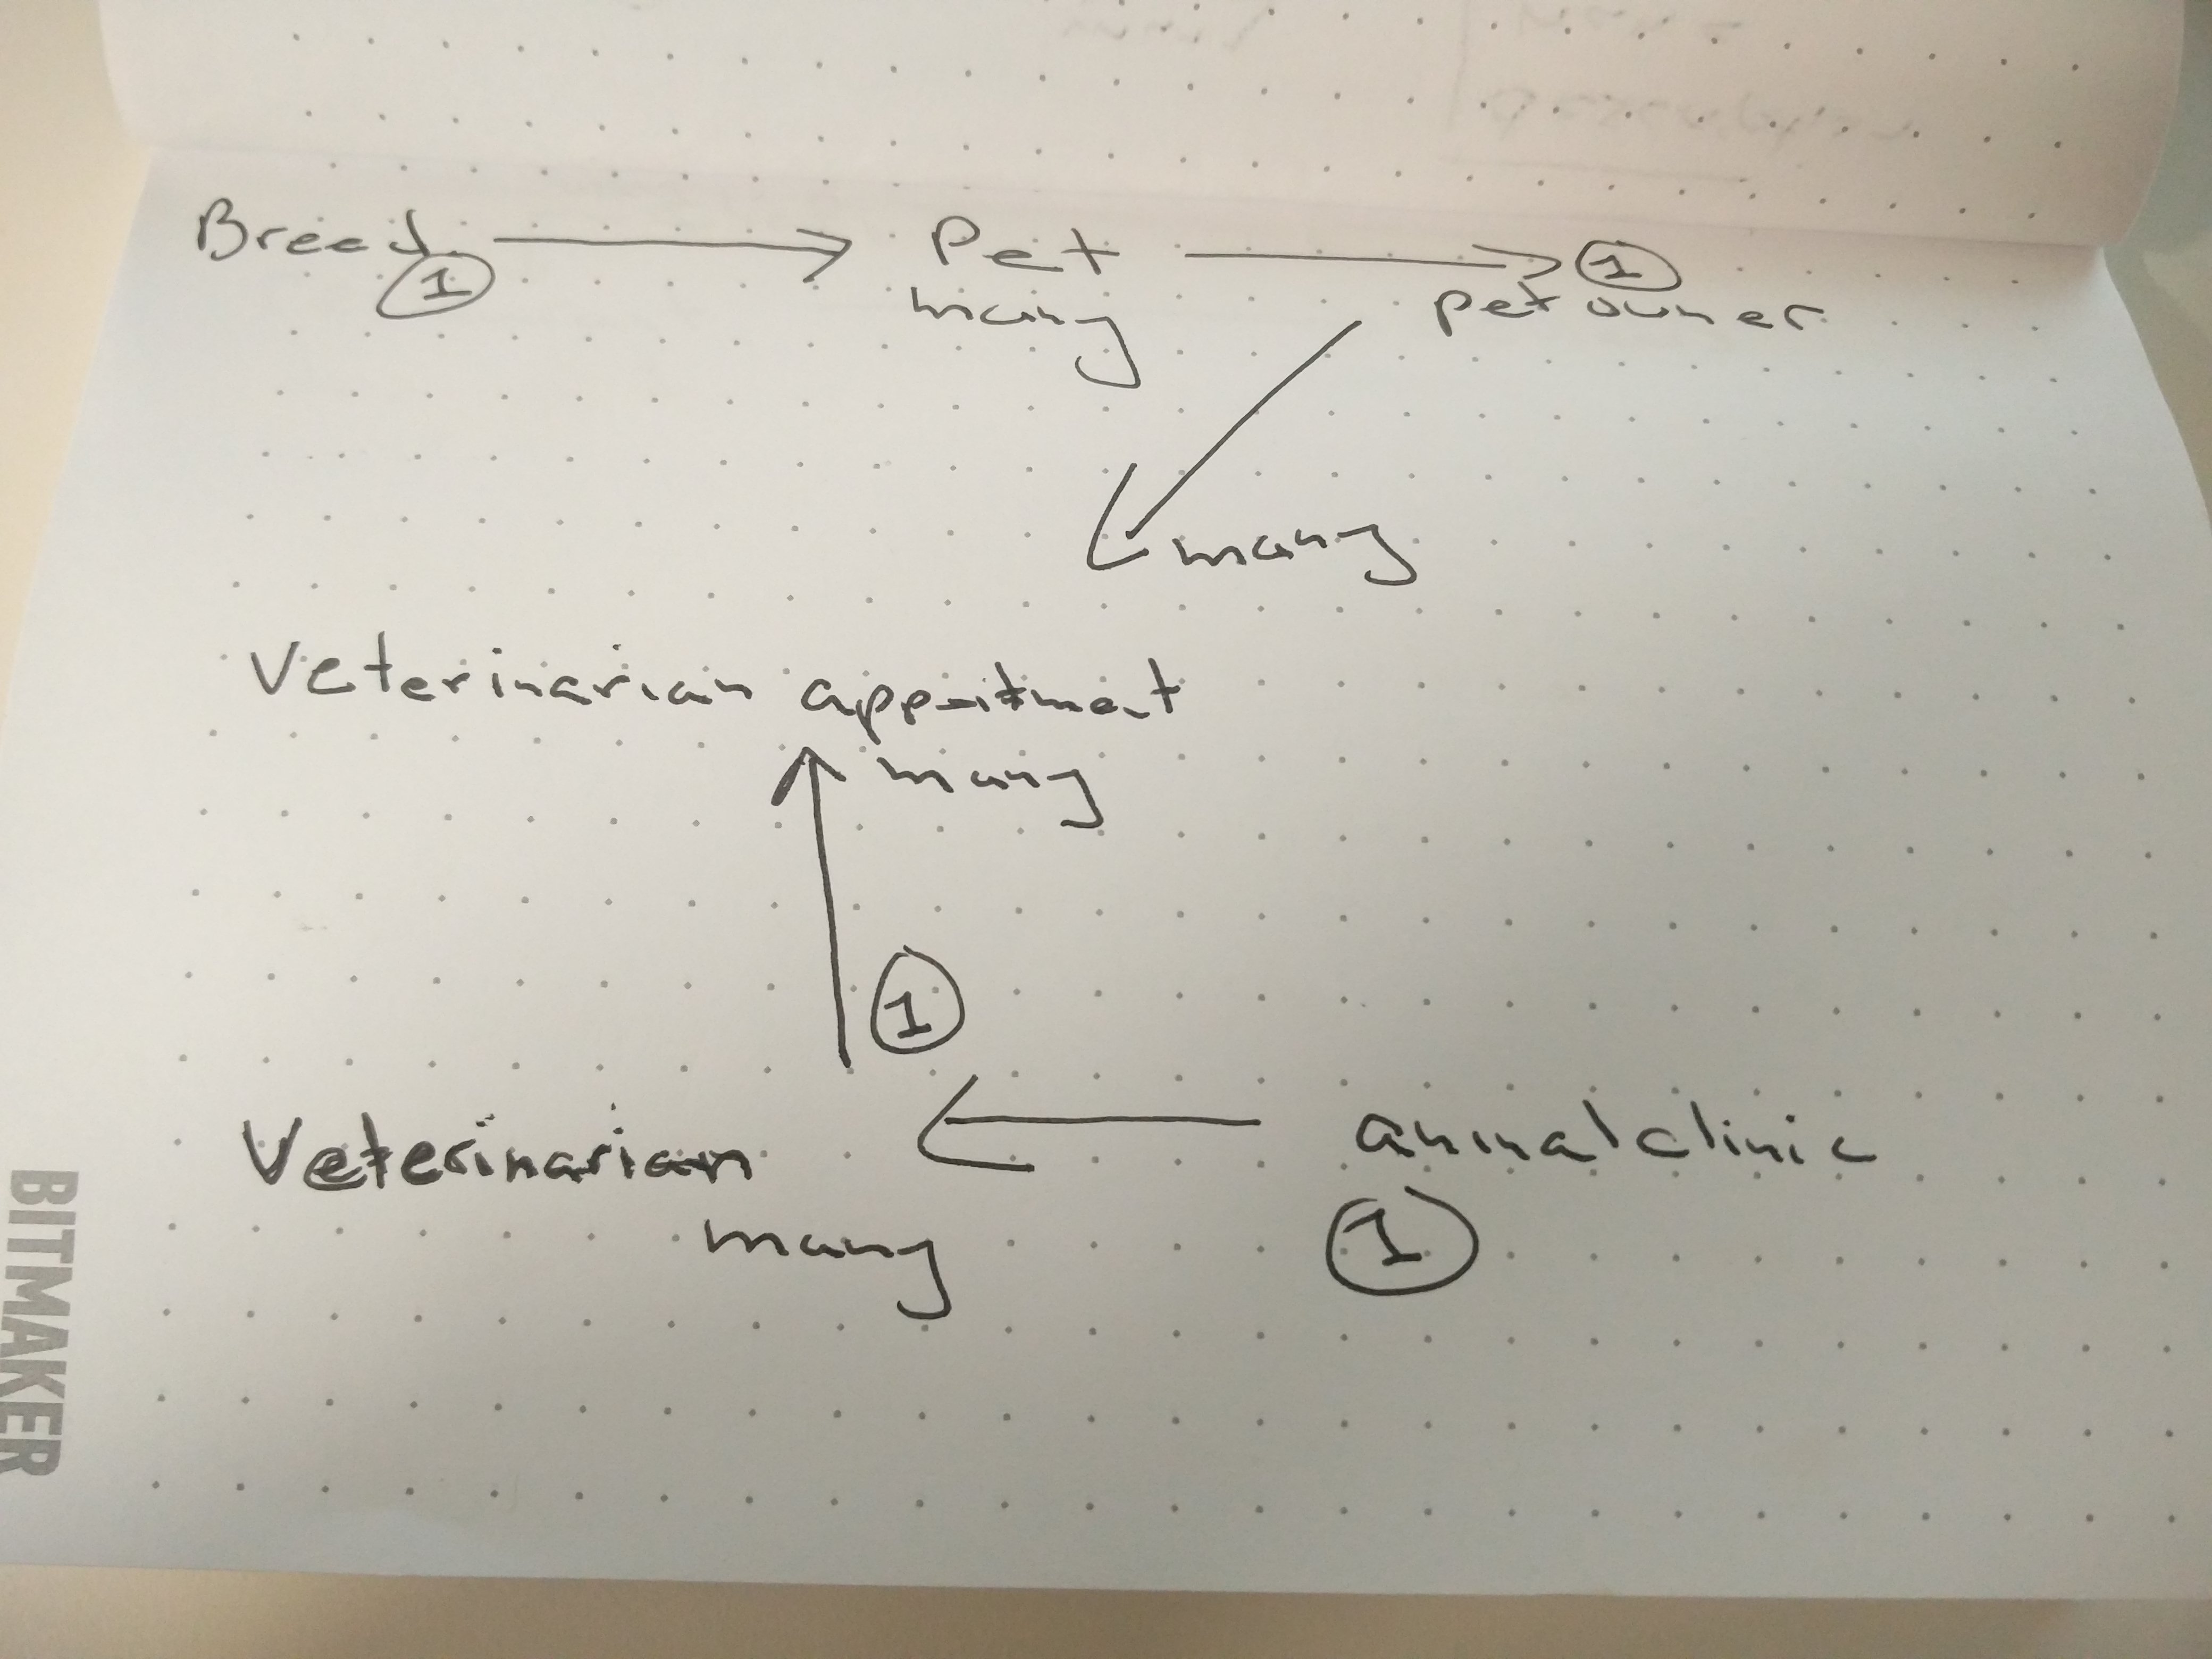 Breed → Pet → 1
1 many pet owner
many
Veterinarian appoitment
many
1
Veterinarian ← animal clinic
many 1
BITMAKER